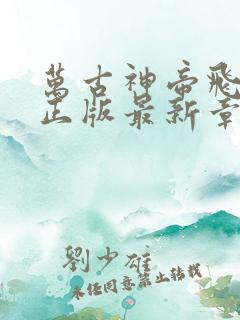 萬古神帝飛
正版最新章
劉少雄
未经同意禁止转载